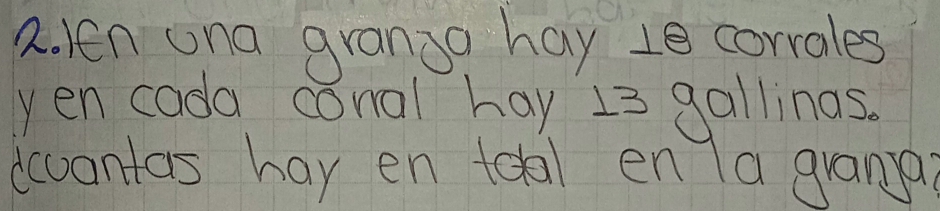 2. En una granja hay 18 corrales
y en cada corral hay 13 gallinas.
¿cuantas hay en total en la granja?